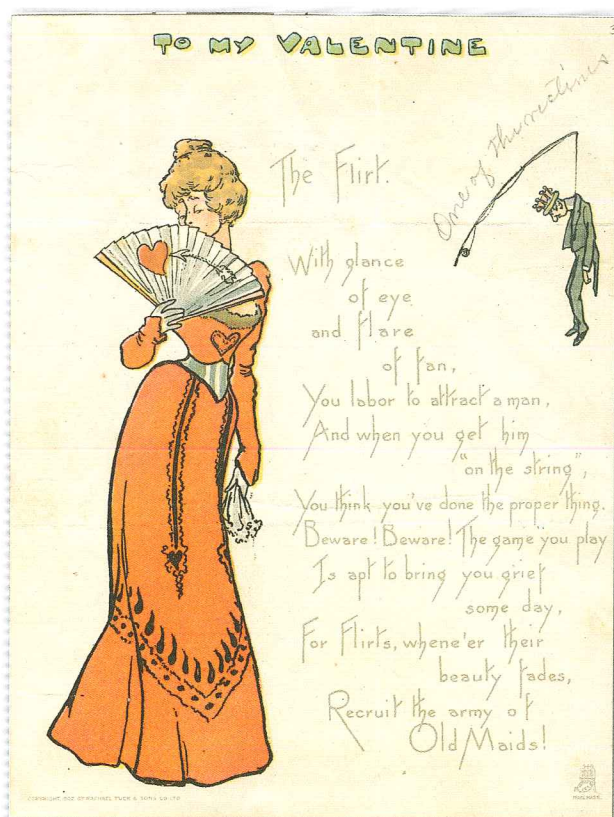 TO MY VALENTINE
One of the victims
The Flirt.
With glance
of eye
and flare
of fan,
You labor to attract a man,
And when you get him
"on the string",
You think you've done the proper thing.
Beware! Beware! The game you play
Is apt to bring you grief
some day,
For Flirts, whene'er their
beauty fades,
Recruit the army of
Old Maids!
COPYRIGHT
RAPHAEL TUCK & SONS CO. LTD